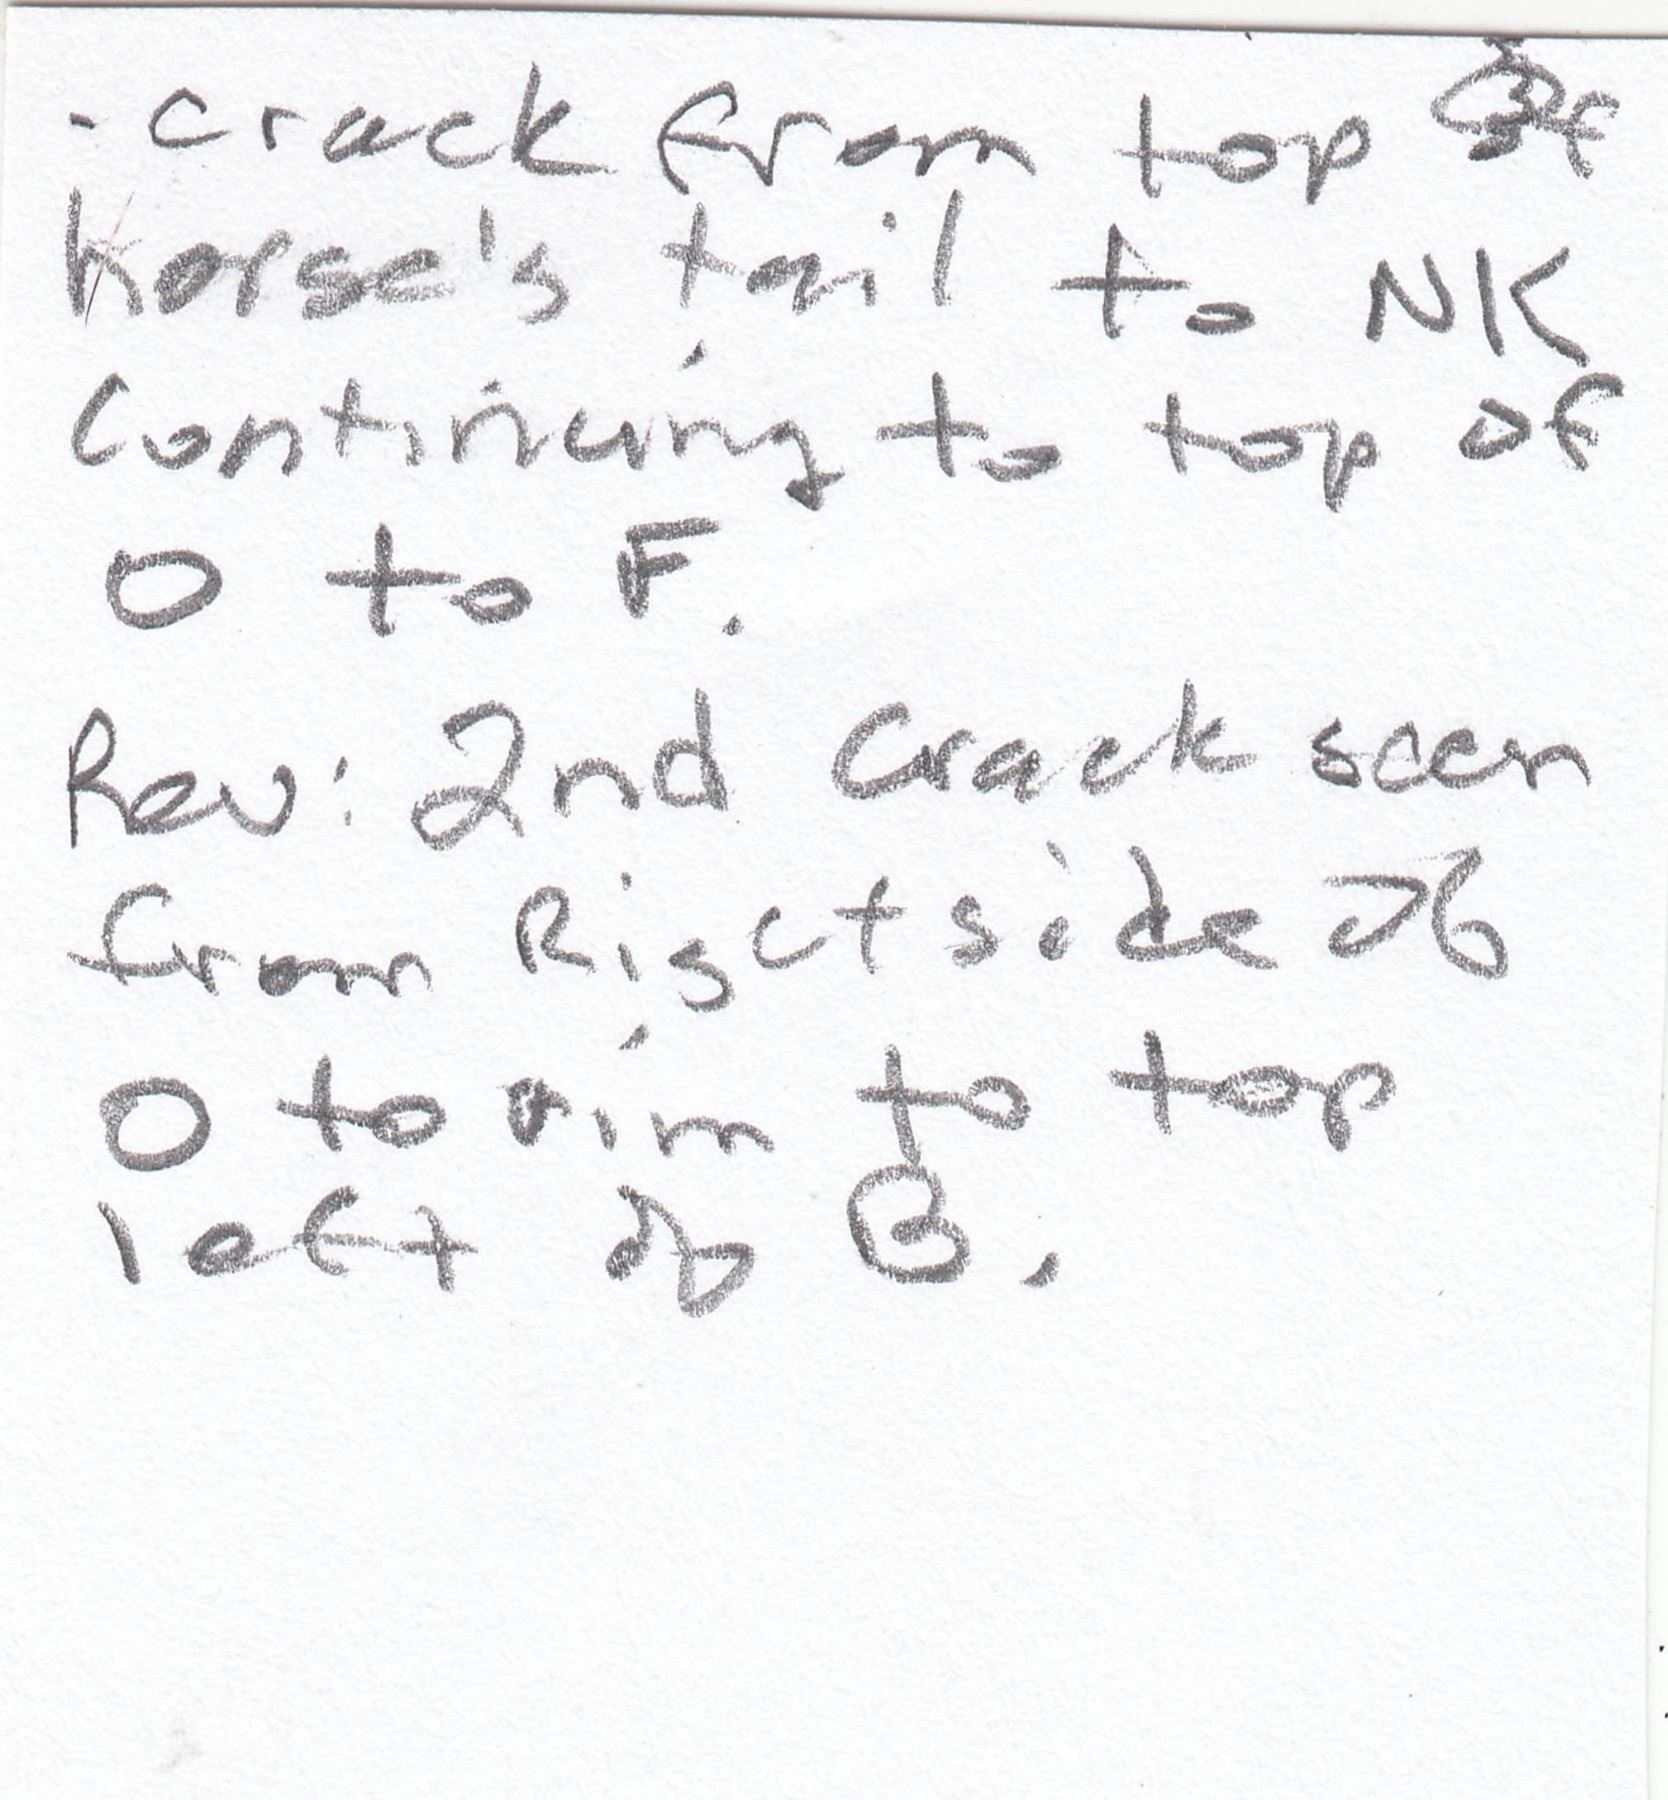 - crack from top of
horse's tail to NK
continuing to top of
O to F.
Rev: 2nd crack seen
from Right side of
O to rim to top
left of B.